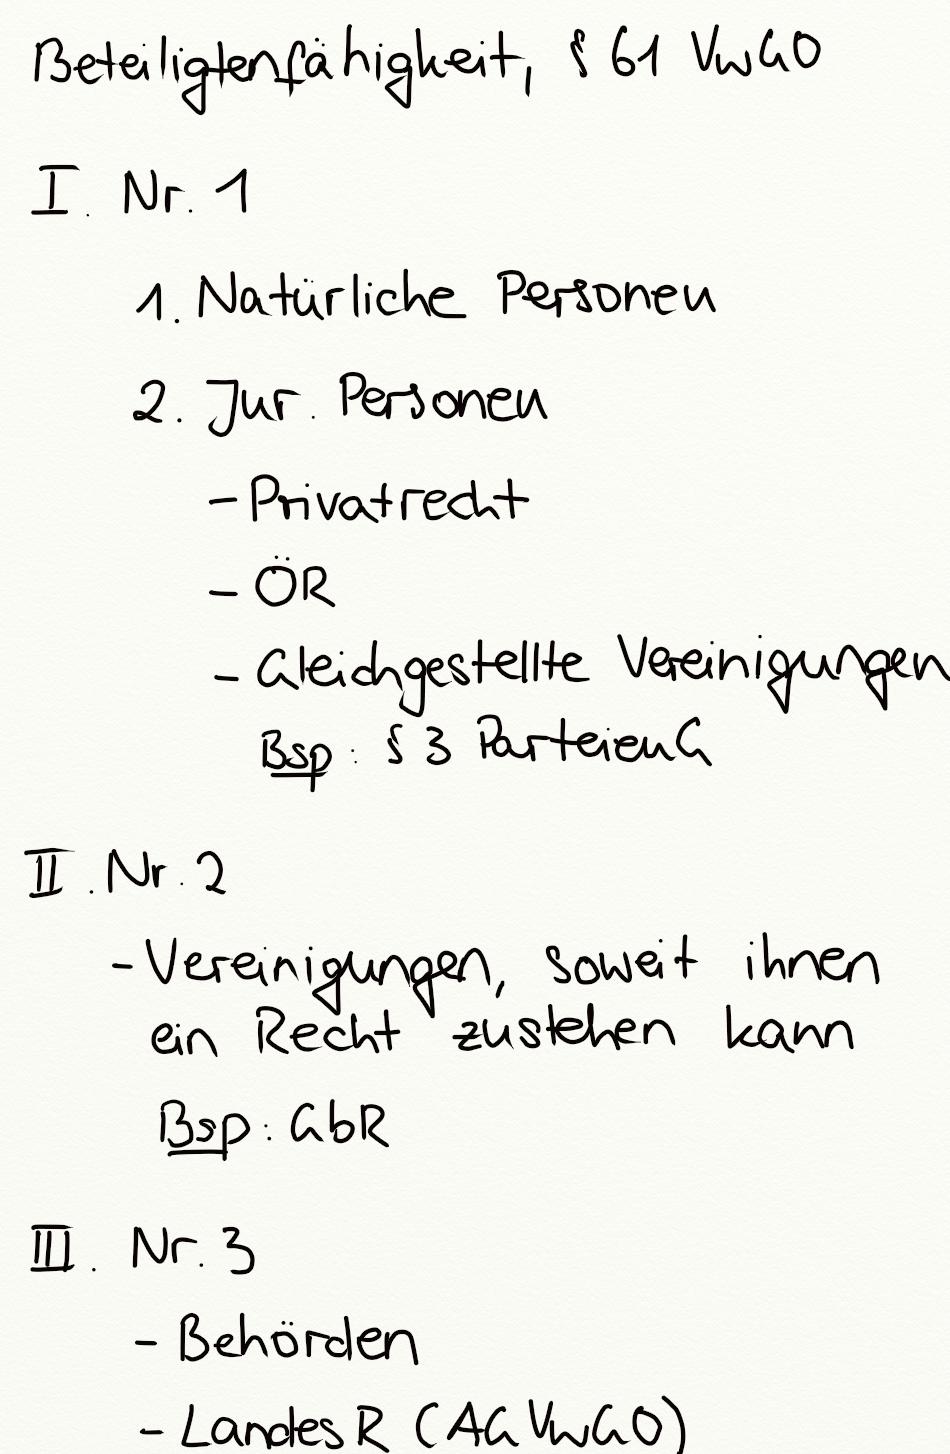 Beteiligtenfähigkeit, § 61 VwGO
I. Nr. 1
1. Natürliche Personen
2. Jur. Personen
- Privatrecht
- ÖR
- Gleichgestellte Vereinigungen
Bsp: § 3 ParteienG
II. Nr. 2
- Vereinigungen, soweit ihnen
ein Recht zustehen kann
Bsp: GbR
III. Nr. 3
- Behörden
- LandesR (AGVwGO)